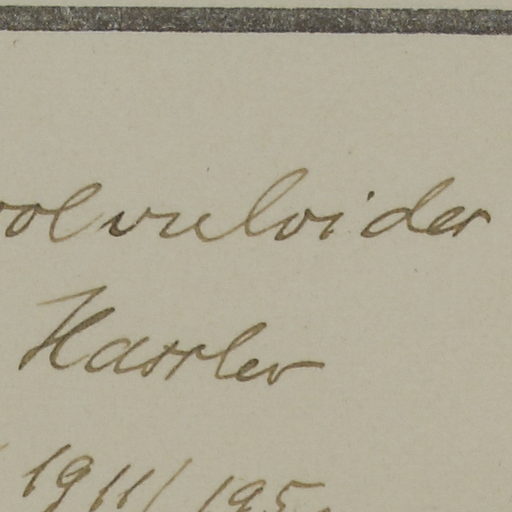 volvuloides
Hassler
1911/195.